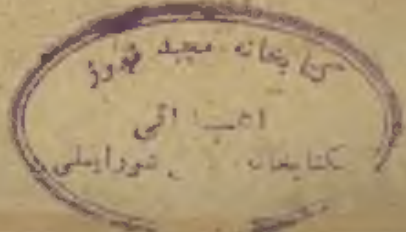 کتابخانه مجید فیروز
اهدائی
بکتابخانه شورایملی